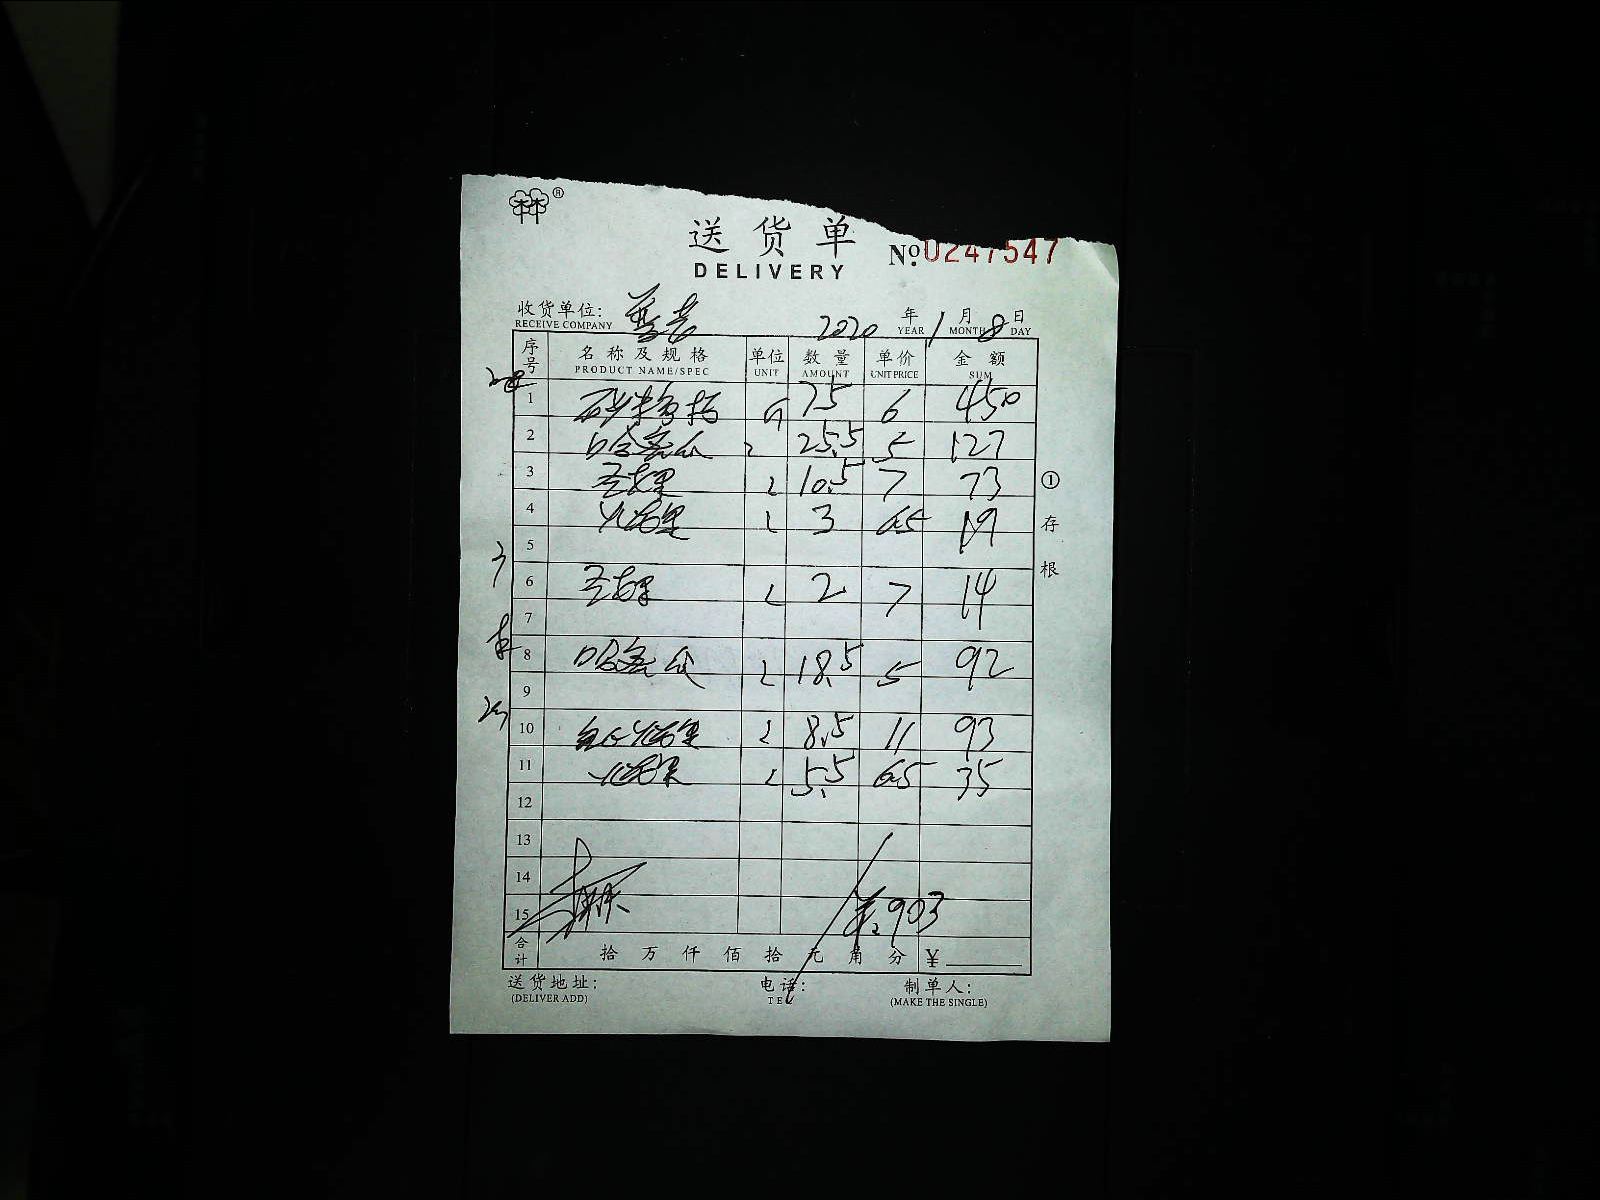 送货单
DELIVERY
№ 0247547
收货单位:
RECEIVE COMPANY
2020 年 1 月 8 日
YEAR MONTH DAY
序号 名称及规格 单位 数量 单价 金额
PRODUCT NAME/SPEC UNIT AMOUNT UNIT PRICE SUM
1 75 6 450
2 哈密瓜 25.5 5 127
3 10.5 7 73
4 火龙果 3 6.5 19
5
6 2 7 14
7
8 哈密瓜 18.5 5 92
9
10 红心火龙果 8.5 11 93
11 火龙果 5.5 6.5 35
12
13
14
15 903
合计 拾 万 仟 佰 拾 元 角 分 ¥
送货地址: 电话: 制单人:
(DELIVER ADD) TEL (MAKE THE SINGLE)
①存根